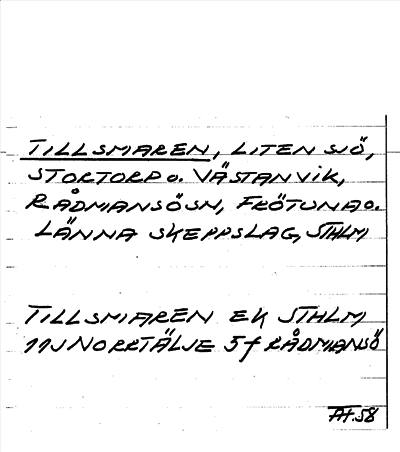 TILLSMAREN, LITEN SJÖ,
STORTORP O. VÄSTANVIK,
RÅDMANSÖSN, FRÖTUNA O.
LÄNNA SKEPPSLAG, STHLM
TILLSMAREN EK STHLM
11J NORRTÄLJE 5f RÅDMANSÖ
AH.58